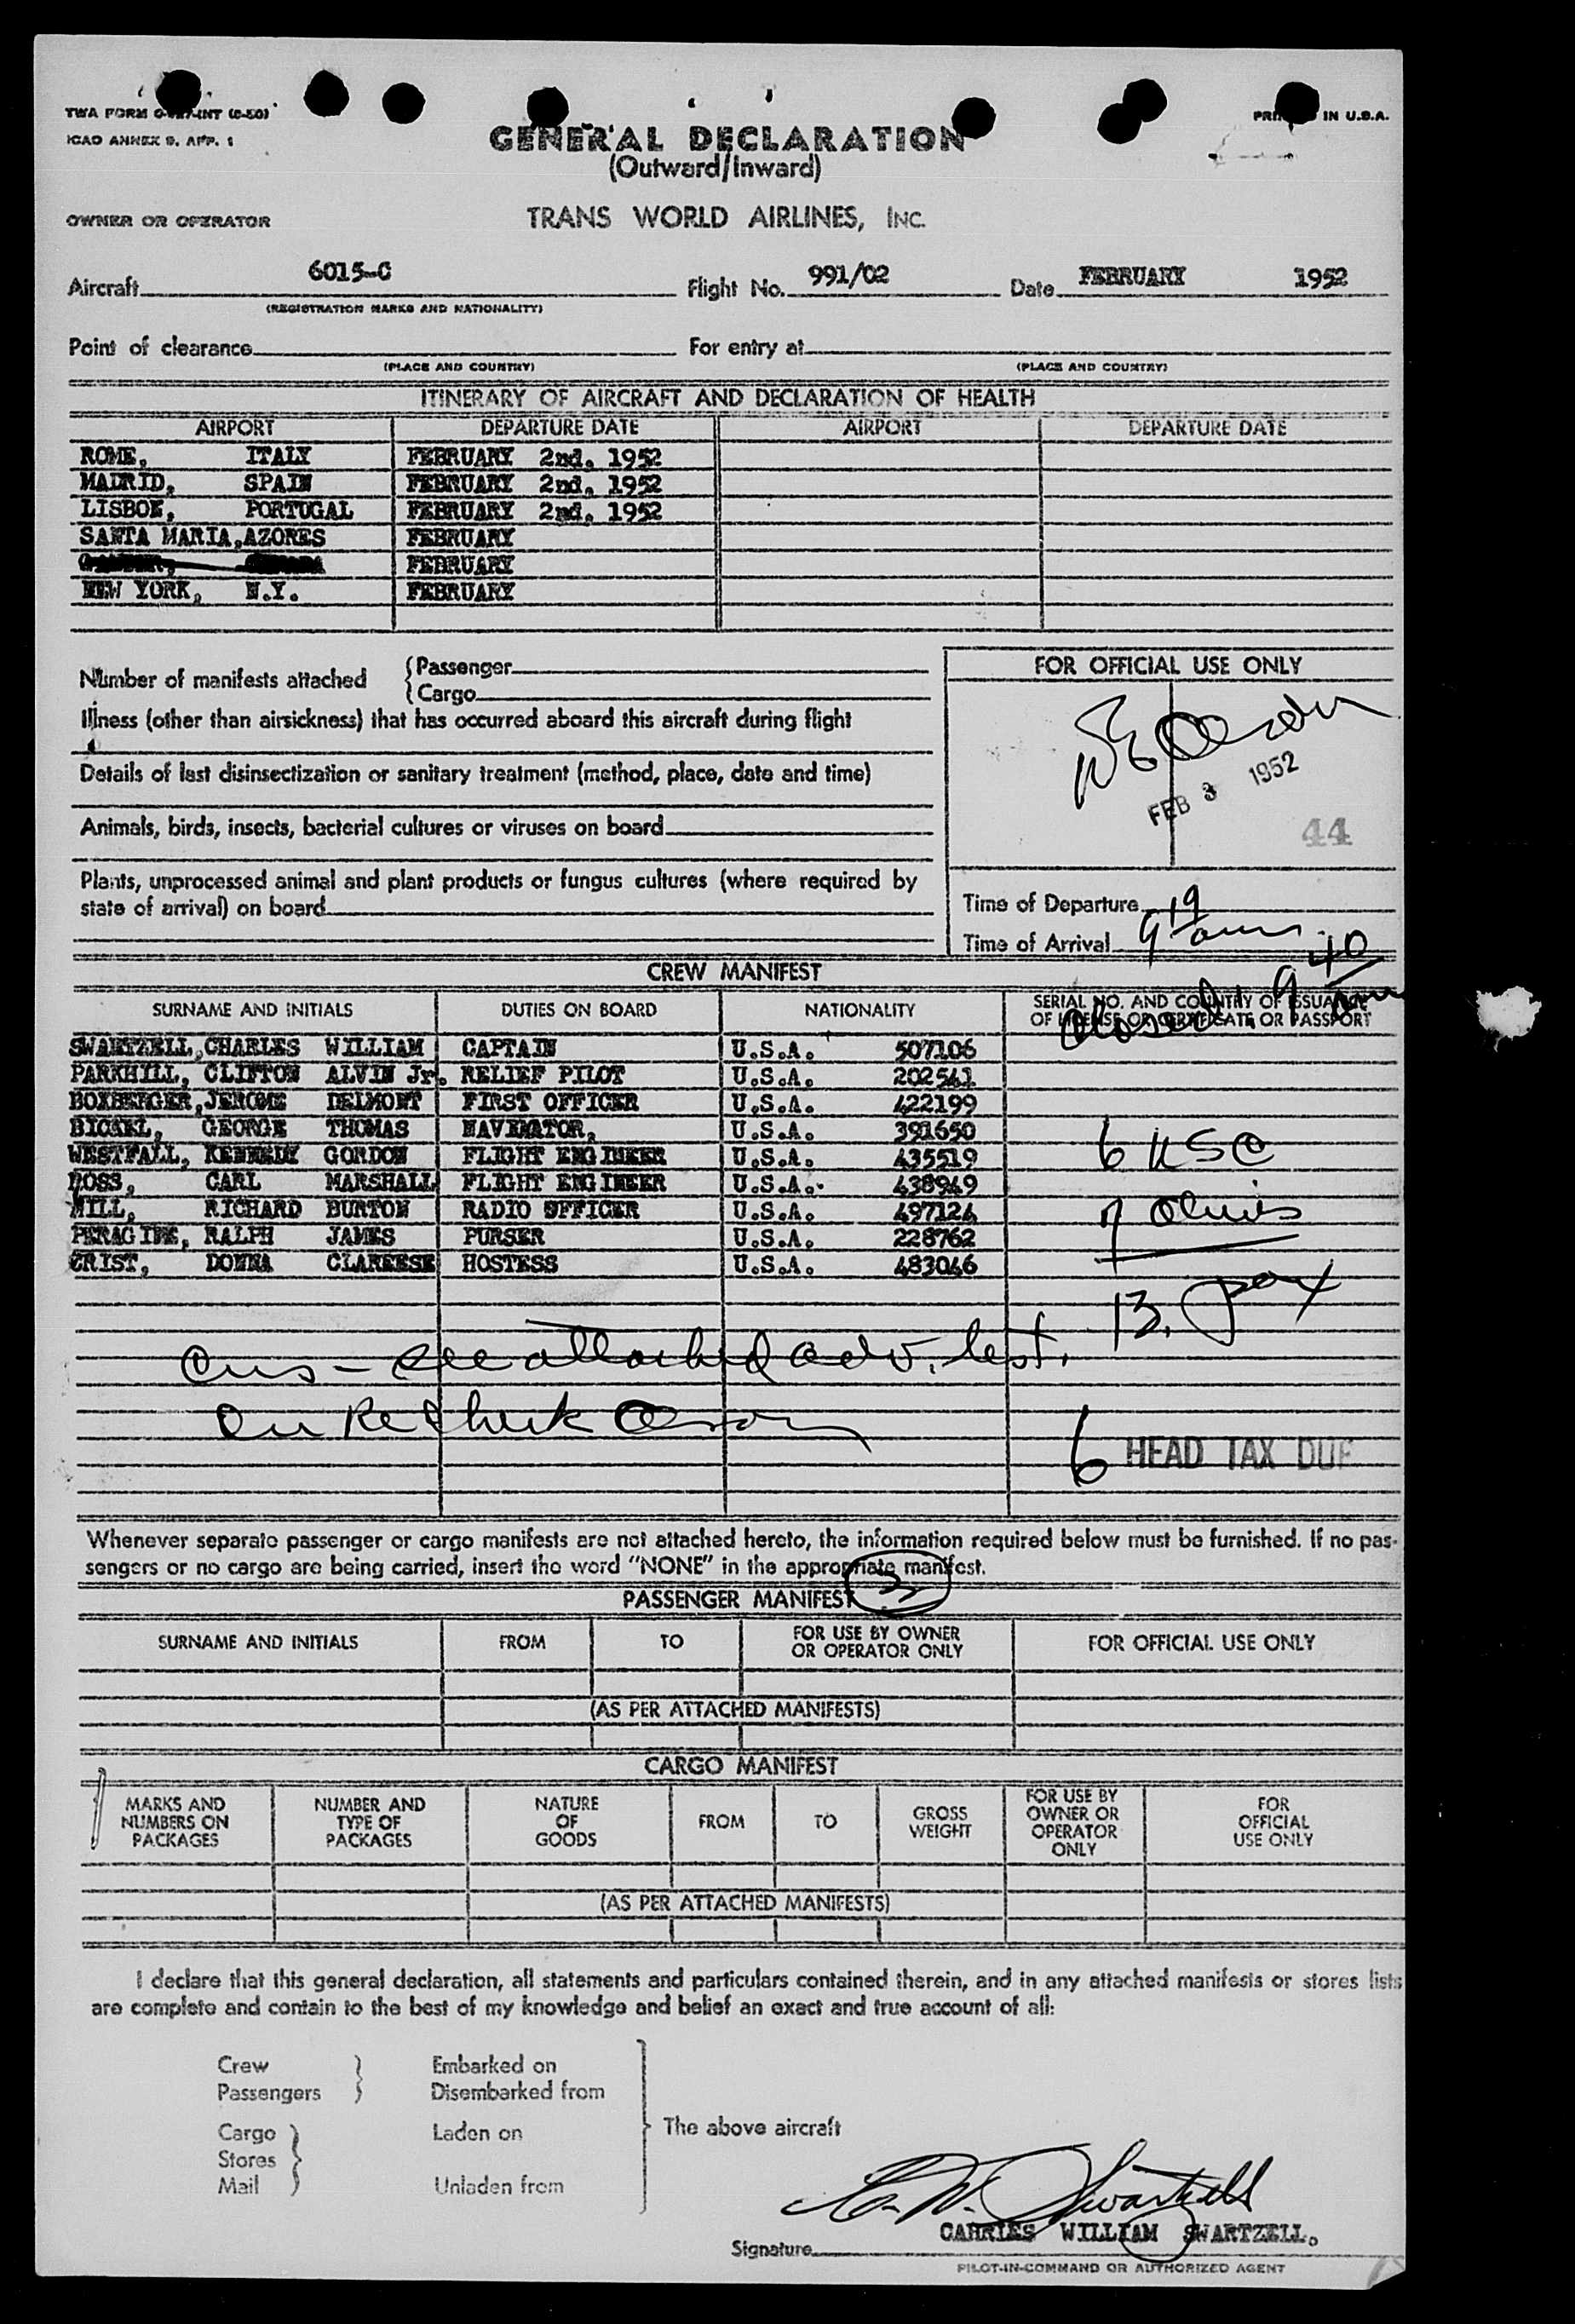 TWA FORM INT (6-50)
ICAO ANNEX 9, APP. 1
PRINTED IN U.S.A.
GENERAL DECLARATION
(Outward/Inward)
OWNER OR OPERATOR TRANS WORLD AIRLINES, INC.
Aircraft 6015-C Flight No. 991/02 Date FEBRUARY 1952
(REGISTRATION MARKS AND NATIONALITY)
Point of clearance For entry at
(PLACE AND COUNTRY) (PLACE AND COUNTRY)
ITINERARY OF AIRCRAFT AND DECLARATION OF HEALTH
AIRPORT DEPARTURE DATE AIRPORT DEPARTURE DATE
ROME, ITALY FEBRUARY 2nd. 1952
MADRID, SPAIN FEBRUARY 2nd. 1952
LISBON, PORTUGAL FEBRUARY 2nd. 1952
SANTA MARIA, AZORES FEBRUARY
FEBRUARY
NEW YORK, N.Y. FEBRUARY
Number of manifests attached { Passenger
{ Cargo
Illness (other than airsickness) that has occurred aboard this aircraft during flight
Details of last disinsectization or sanitary treatment (method, place, date and time)
Animals, birds, insects, bacterial cultures or viruses on board
Plants, unprocessed animal and plant products or fungus cultures (where required by
state of arrival) on board
FOR OFFICIAL USE ONLY
FEB 3 1952
44
Time of Departure
Time of Arrival 9 19 am
9 40
CREW MANIFEST
SURNAME AND INITIALS DUTIES ON BOARD NATIONALITY SERIAL NO. AND COUNTRY OF ISSUANCE
OF LICENSE OR CERTIFICATE OR PASSPORT
SWARTZELL, CHARLES WILLIAM CAPTAIN U.S.A. 507106
PARKHILL, CLIFTON ALVIN Jr. RELIEF PILOT U.S.A. 202541
BOXBERGER, JEROME DELMONT FIRST OFFICER U.S.A. 422199
BICKEL, GEORGE THOMAS NAVIGATOR, U.S.A. 391650
WESTFALL, KENNEDY GORDON FLIGHT ENGINEER U.S.A. 435519
ROSS, CARL MARSHALL FLIGHT ENGINEER U.S.A. 438949
HILL, RICHARD BURTON RADIO OFFICER U.S.A. 497124
PERAGINE, RALPH JAMES PURSER U.S.A. 228762
CRIST, DONNA CLAREESE HOSTESS U.S.A. 483046
6 USC
7 aliens
13. pax
see attached adv. list.
on Recheck
6 HEAD TAX DUE
Whenever separate passenger or cargo manifests are not attached hereto, the information required below must be furnished. If no pas-
sengers or no cargo are being carried, insert the word "NONE" in the appropriate manifest.
PASSENGER MANIFEST
SURNAME AND INITIALS FROM TO FOR USE BY OWNER
OR OPERATOR ONLY FOR OFFICIAL USE ONLY
(AS PER ATTACHED MANIFESTS)
CARGO MANIFEST
MARKS AND
NUMBERS ON
PACKAGES
NUMBER AND
TYPE OF
PACKAGES
NATURE
OF
GOODS
FROM
TO
GROSS
WEIGHT
FOR USE BY
OWNER OR
OPERATOR
ONLY
FOR
OFFICIAL
USE ONLY
(AS PER ATTACHED MANIFESTS)
I declare that this general declaration, all statements and particulars contained therein, and in any attached manifests or stores lists
are complete and contain to the best of my knowledge and belief an exact and true account of all:
Crew } Embarked on
Passengers } Disembarked from
Cargo Laden on The above aircraft
Stores
Mail Unladen from
C. W. Swartzell
CAHRLES WILLIAM SWARTZELL.
Signature
PILOT-IN-COMMAND OR AUTHORIZED AGENT